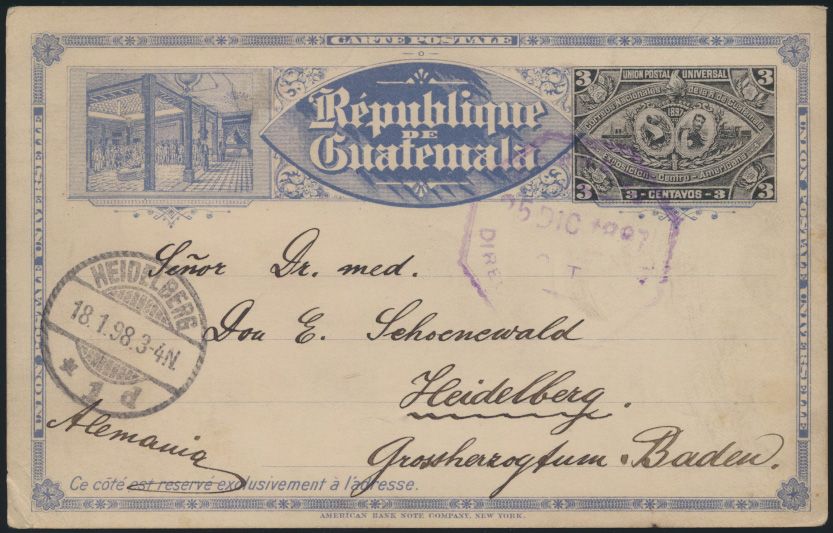 CARTE POSTALE
UNION POSTALE UNIVERSELLE
République
DE
Guatemala
3 UNION POSTAL UNIVERSAL 3
Correos Nacionales de la R. de Guatemala
1897
Exposicion Centro-Americana
3 3 - CENTAVOS - 3 3
25 DIC 1897
HEIDELBERG
18.1.98.3-4N.
* 1 d
Señor Dr. med.
Don E. Schoenewald
Heidelberg.
Grossherzogtum Baden.
Alemania
Ce côté est reservé exclusivement à l'adresse.
UNION POSTALE UNIVERSELLE
AMERICAN BANK NOTE COMPANY, NEW YORK.